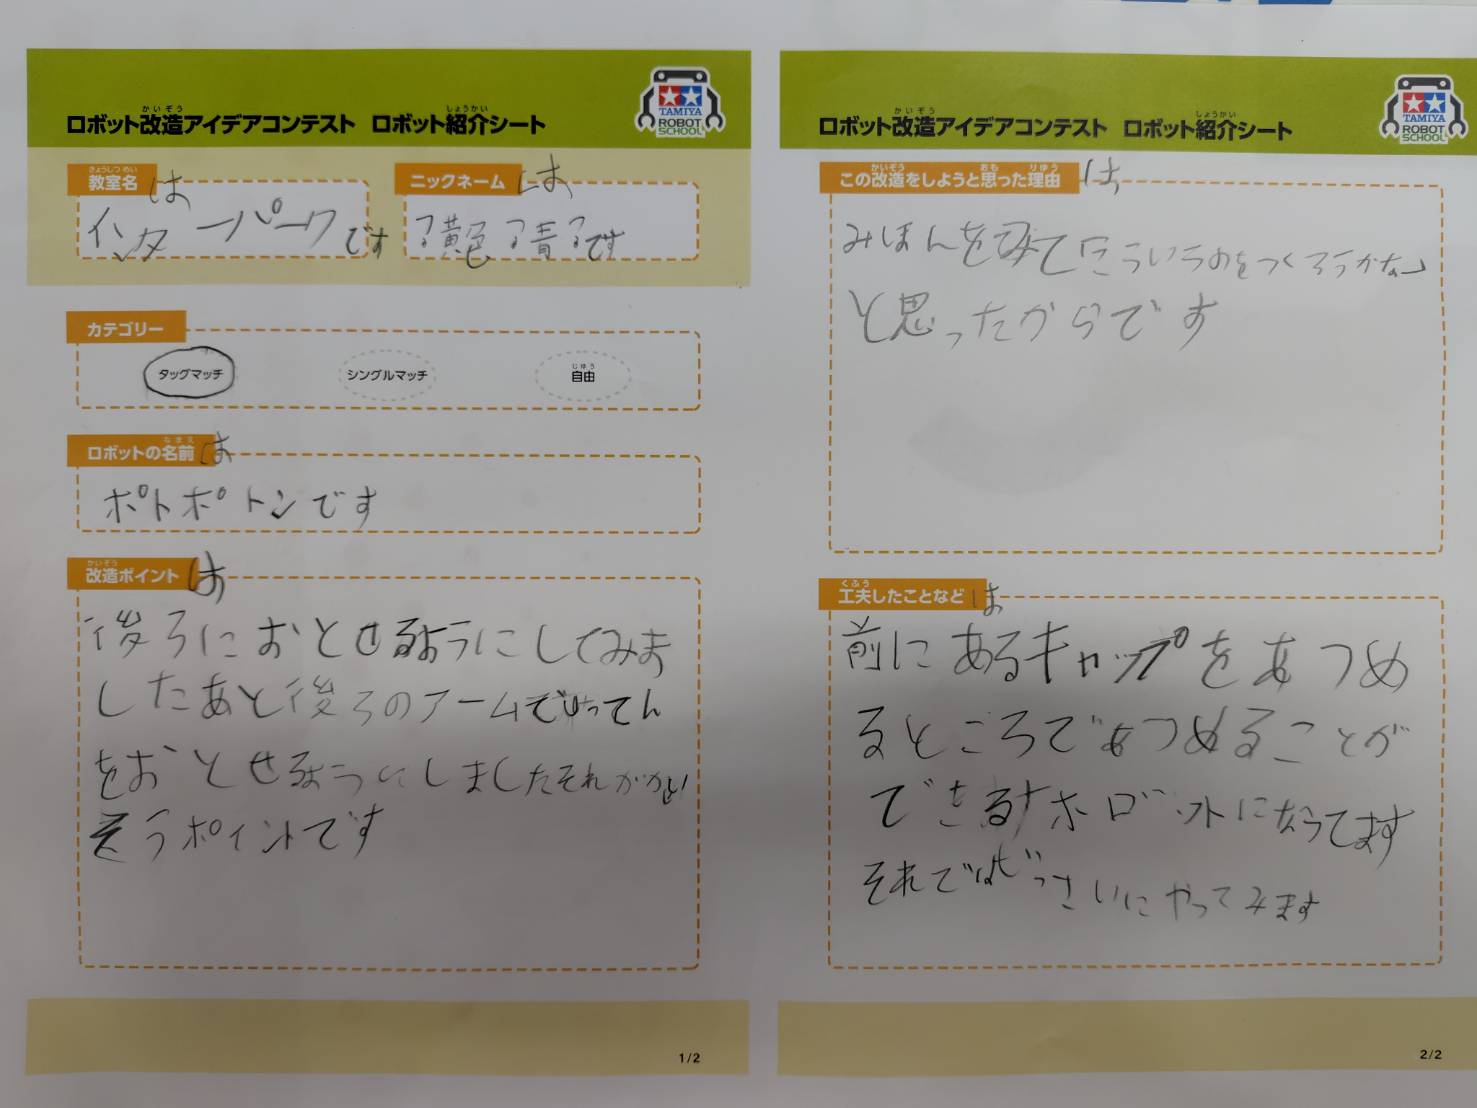 かいぞう しょうかい
ロボット改造アイデアコンテスト ロボット紹介シート
TAMIYA
ROBOT
SCHOOL
きょうしつめい
教室名は
インターパークです
ニックネームは
黄色 青 です
カテゴリー
タッグマッチ シングルマッチ じゆう 自由
なまえ
ロボットの名前は
ポトポトンです
かいぞう
改造ポイントは
後ろにおとせるようにしてみま
したあと後ろのアームで
をおとせるようにしましたそれがかい
ぞうポイントです
1/2
かいぞう しょうかい
ロボット改造アイデアコンテスト ロボット紹介シート
TAMIYA
ROBOT
SCHOOL
かいぞう おも りゆう
この改造をしようと思った理由は
みほんをみてこういうのをつくろうかな
と思ったからです
くふう
工夫したことなどは
前にあるキャップをあつめ
るところであつめることが
できる ロボットになってます
それではじっさいにやってみます
2/2